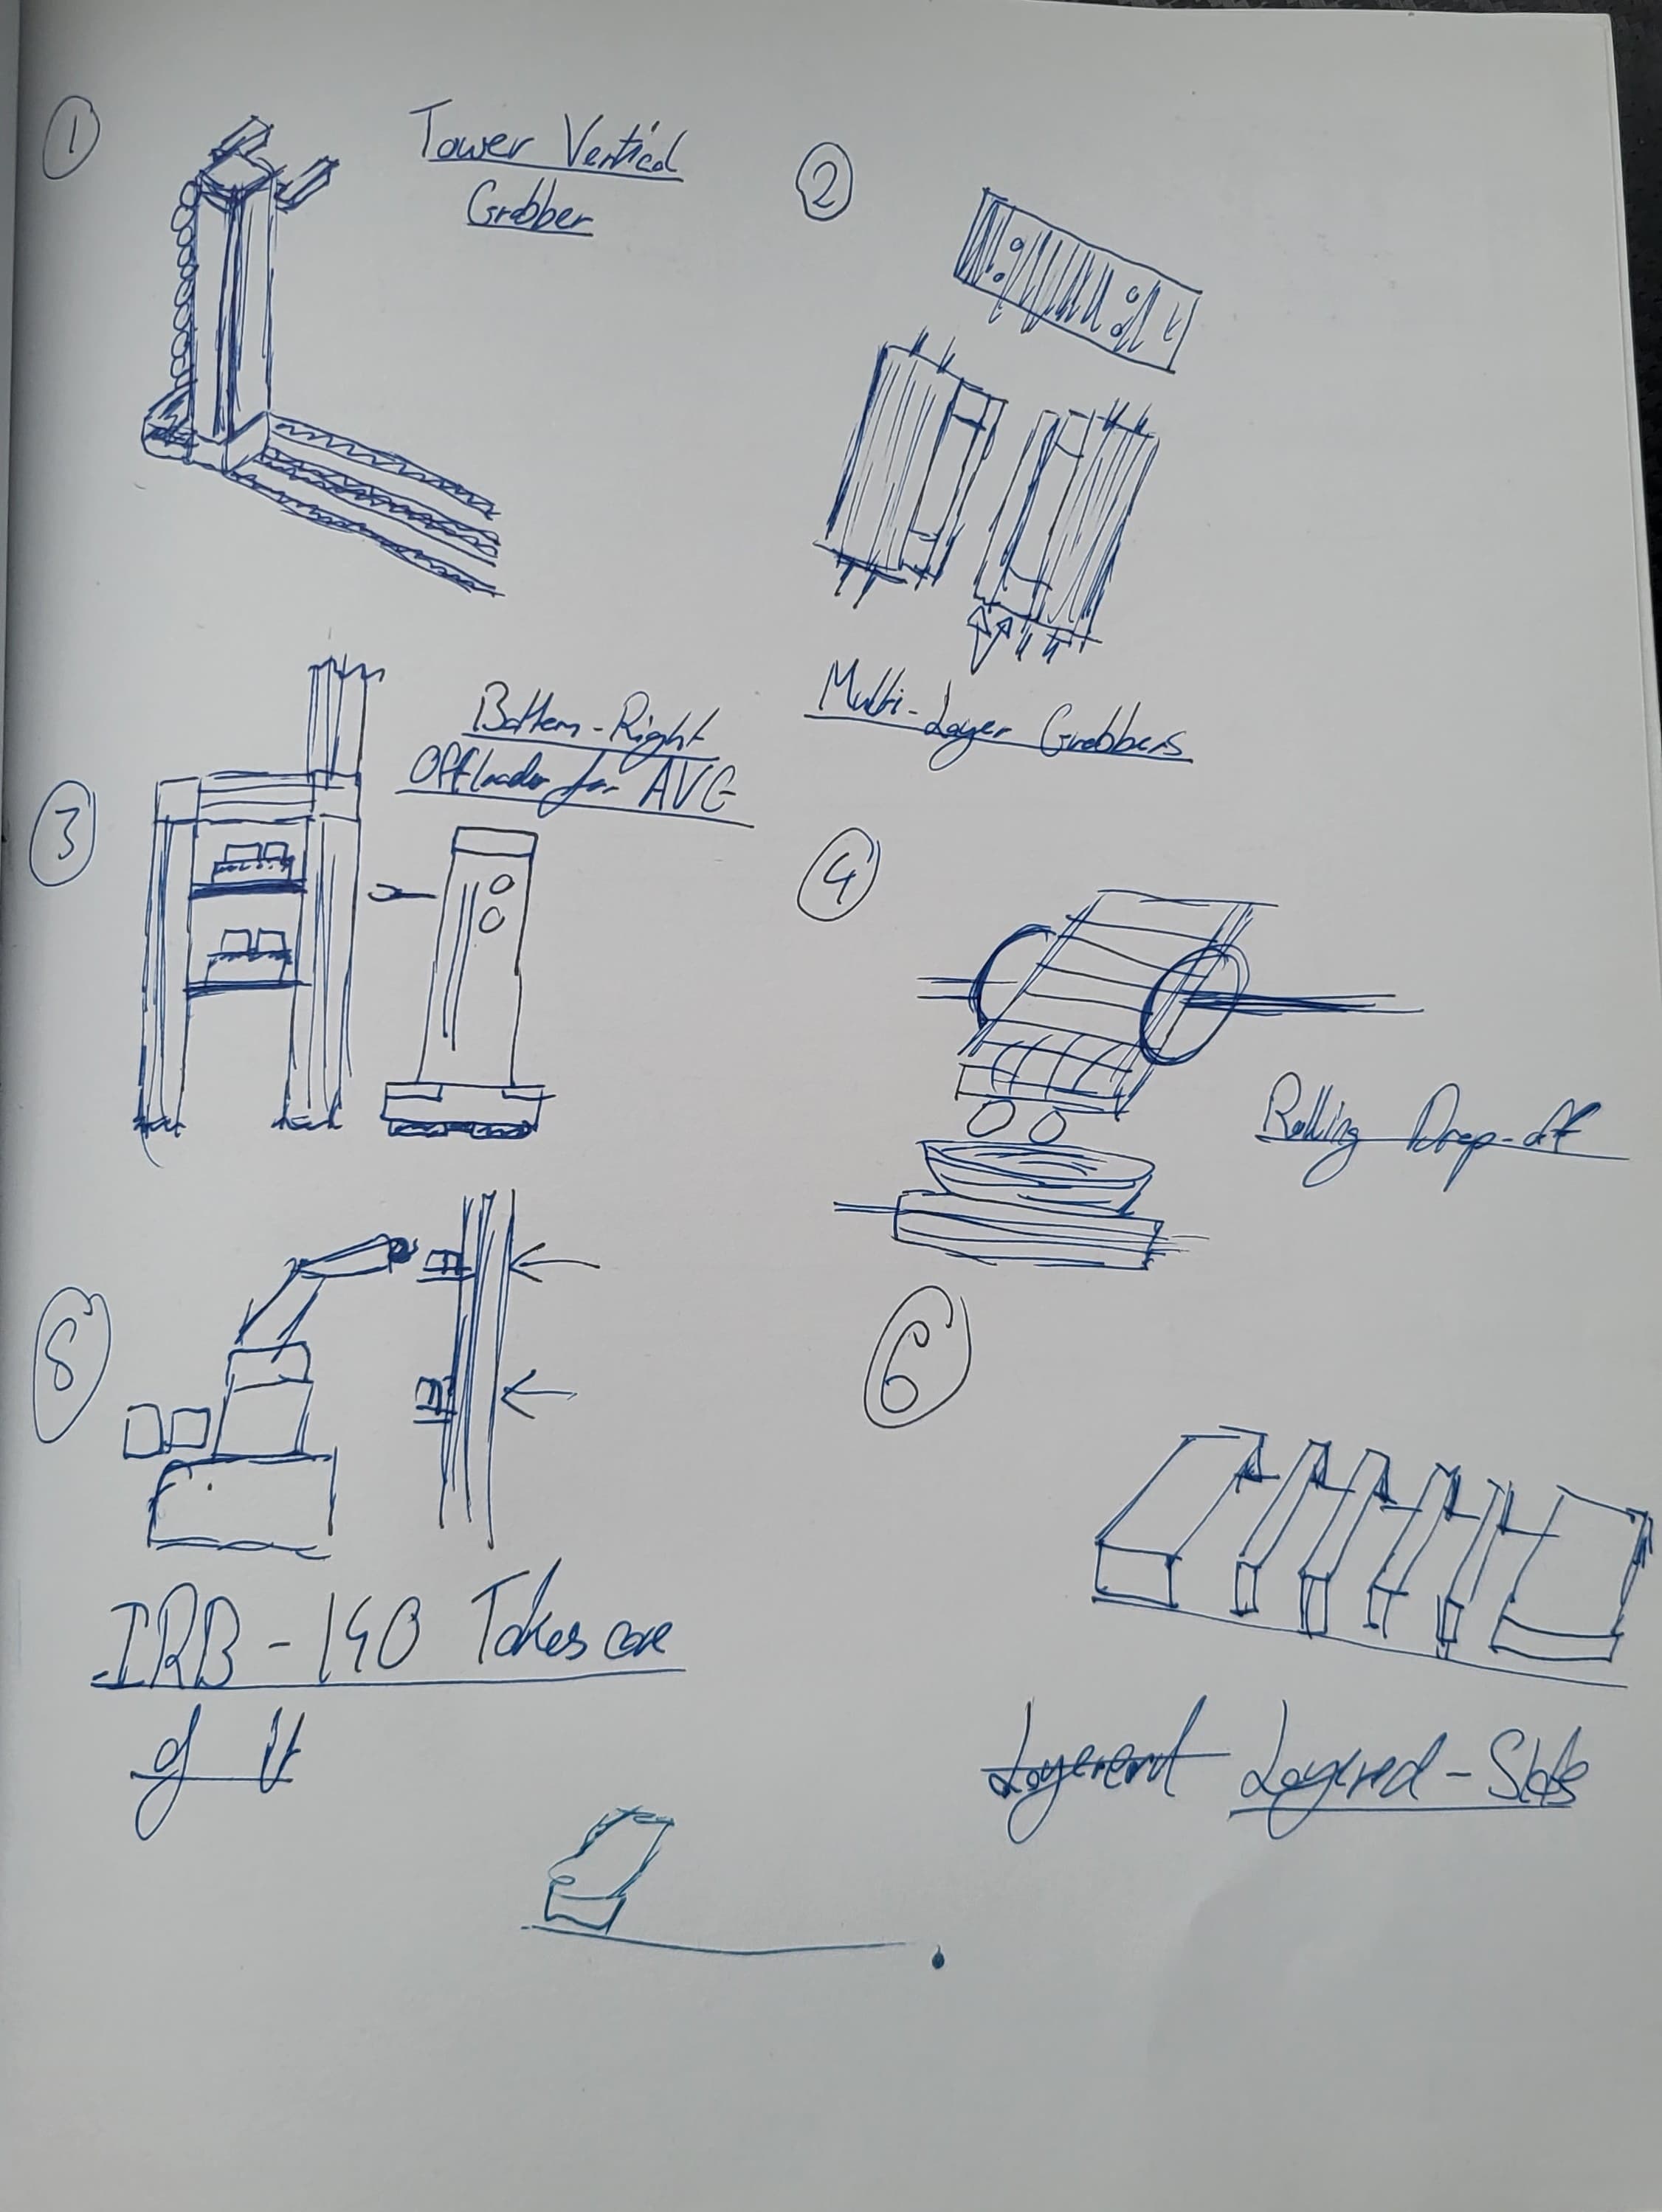 1
Tower Vertical
Grabber
2
Multi-Layer Grabbers
3
Bottem-Right
Offloader for AVG
4
Rolling Drop-off
5
IRB-140 Takes care
of it
6
Layerent Layered-Slots